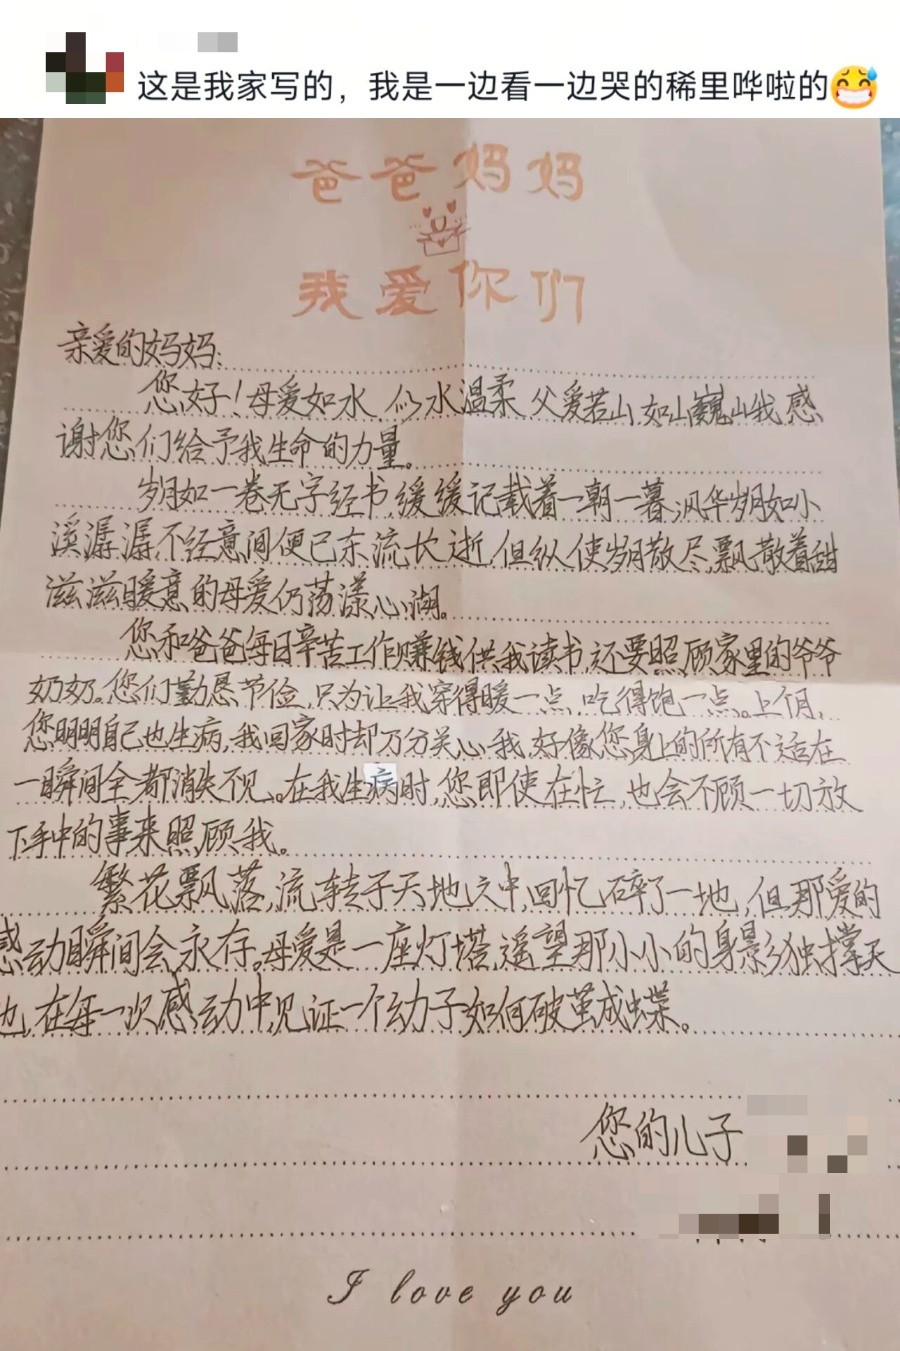 这是我家写的，我是一边看一边哭的稀里哗啦的😅
爸爸妈妈
我爱你们
亲爱的妈妈：
您好！母爱如水，似水温柔，父爱若山，如山巍山我感
谢您们给予我生命的力量。
岁月如一卷无字经书，缓缓记载着一朝一暮，风华岁月如小
溪潺潺，不经意间便已东流坎逝，但纵使岁月散尽，飘散着甜
滋滋暖意的母爱仍荡漾心湖。
您和爸爸每日辛苦工作赚钱供我读书，还要照顾家里的爷爷
奶奶。您们勤恳节俭，只为让我穿得暖一点，吃得饱一点。上个月，
您明明自己也生病，我回家时却万分关心我，好像您身上的所有不适在
一瞬间全都消失不见。在我生病时，您即使在忙，也会不顾一切放
下手中的事来照顾我。
繁花飘落，流转于天地之中，回忆碎了一地，但那爱的
感动瞬间会永存。母爱是一座灯塔，遥望那小小的身影独撑天
也，在每一次感动中，见证一个幼子如何破茧成蝶。
您的儿子
I love you